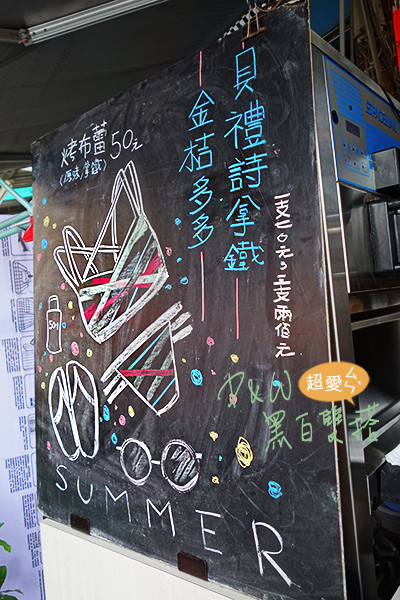 貝禮詩拿鐵
金桔多多
烤布蕾50元
(原味拿鐵)
一支70元，三支兩佰元
50+
P&W
超愛ㄅ
黑白雙搭
SUMMER